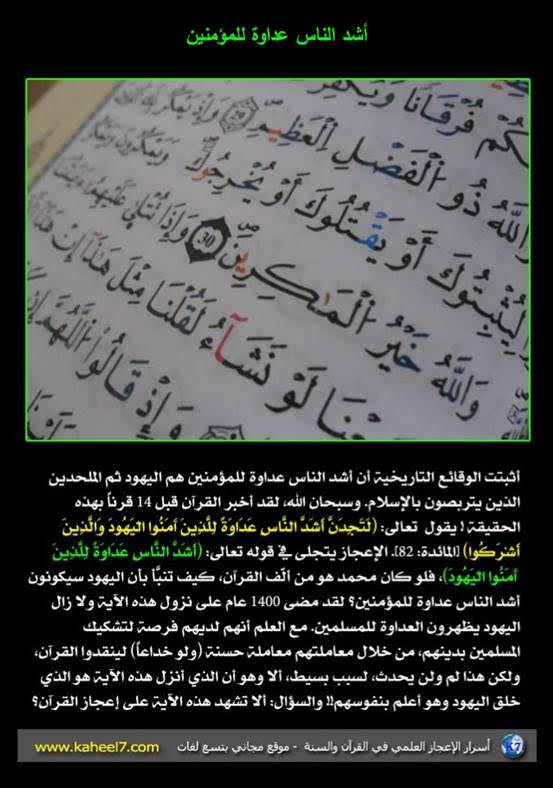 أشد الناس عداوة للمؤمنين
كُمْ فُرْقَانًا وَيُكَفِّرْ
وَاللَّهُ ذُو الْفَضْلِ الْعَظِيمِ ٢٩ وَإِذْ يَمْكُرُ بِكَ الَّذِ
لِيُثْبِتُوكَ أَوْ يَقْتُلُوكَ أَوْ يُخْرِجُوكَ وَيَمْكُرُونَ وَيَمْكُرُ
وَاللَّهُ خَيْرُ الْمَاكِرِينَ 30 وَإِذَا تُتْلَى عَلَيْهِمْ آيَاتُنَا
عْنَا لَوْ نَشَاءُ لَقُلْنَا مِثْلَ هَذَا إِنْ هَذَا
وَإِذْ قَالُوا اللَّهُمَّ إِنْ
أثبتت الوقائع التاريخية أن أشد الناس عداوة للمؤمنين هم اليهود ثم الملحدين
الذين يتربصون بالإسلام. وسبحان الله، لقد أخبر القرآن قبل 14 قرناً بهذه
الحقيقة! يقول تعالى: (لَتَجِدَنَّ أَشَدَّ النَّاسِ عَدَاوَةً لِلَّذِينَ آمَنُوا الْيَهُودَ وَالَّذِينَ
أَشْرَكُوا) [المائدة: 82]. الإعجاز يتجلى في قوله تعالى: (أَشَدَّ النَّاسِ عَدَاوَةً لِلَّذِينَ
آمَنُوا الْيَهُودَ)، فلو كان محمد هو من ألّف القرآن، كيف تنبَّأ بأن اليهود سيكونون
أشد الناس عداوة للمؤمنين؟ لقد مضى 1400 عام على نزول هذه الآية ولا زال
اليهود يظهرون العداوة للمسلمين. مع العلم أنهم لديهم فرصة لتشكيك
المسلمين بدينهم، من خلال معاملتهم معاملة حسنة (ولو خداعاً) لينقدوا القرآن،
ولكن هذا لم ولن يحدث، لسبب بسيط، ألا وهو أن الذي أنزل هذه الآية هو الذي
خلق اليهود وهو أعلم بنفوسهم!! والسؤال: ألا تشهد هذه الآية على إعجاز القرآن؟
أسرار الإعجاز العلمي في القرآن والسنة - موقع مجاني بتسع لغات www.kaheel7.com
K7